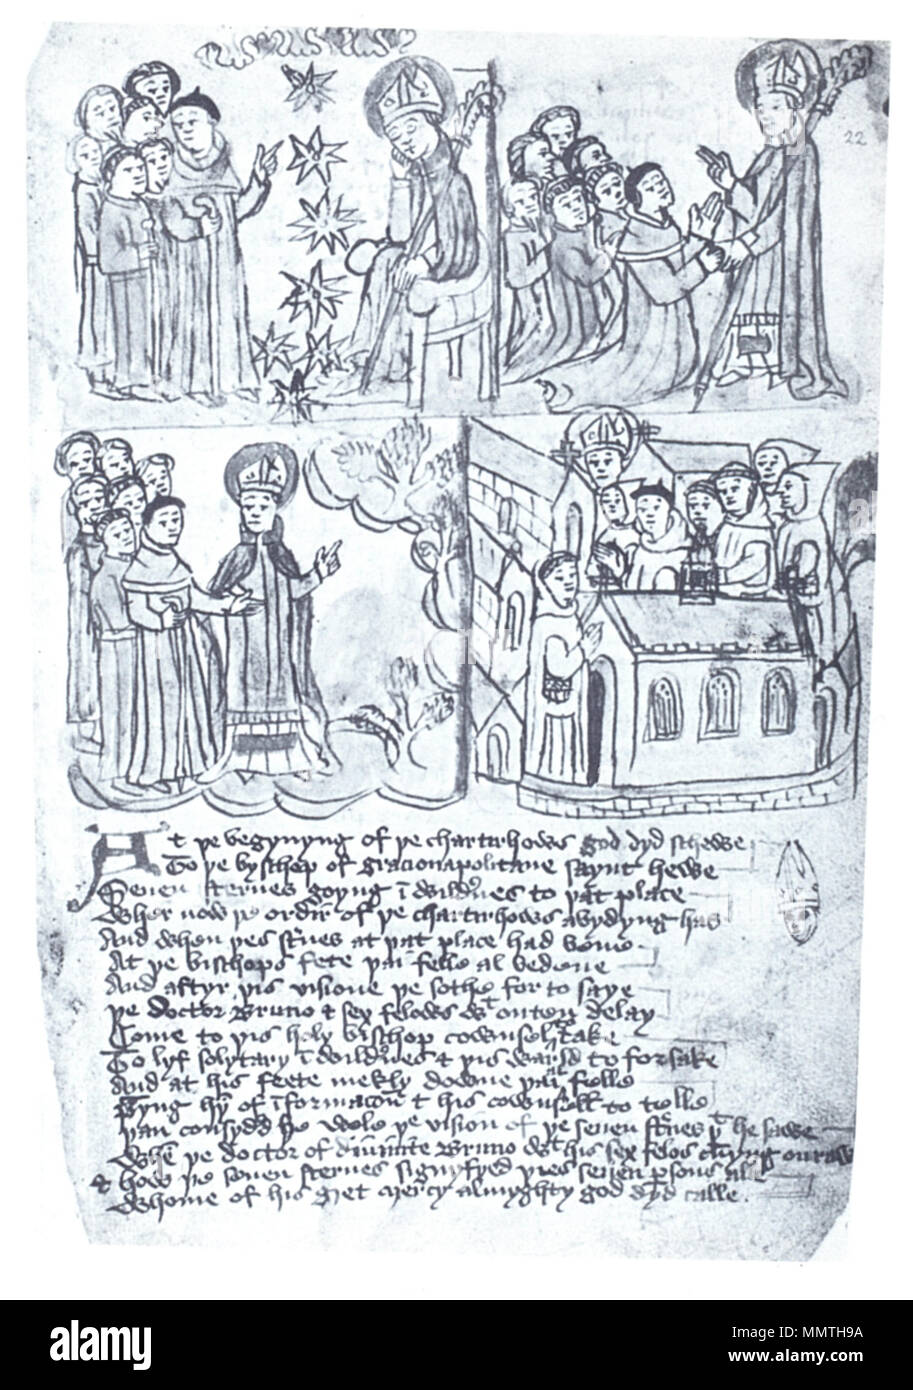 22
At þe begynyng of þe chartirhows god dyd schewe
To þe byschop of gracionapolitane saynt hewe
Seuen sternes goyng ī wildr̄nes to þat place
Wher now þe ordir of þe chartirhows abydyng has
And when þes strnes at þat place had bene
At þe bischops fete þai felle al bedene
And aftyr þis visione þe sothe for to saye
þe doctor Bruno & sex felows wt outen delay
Come to þis holy bischop cownsel take
To lyf solytary ī wildr̄nes & þis warld to forsake
And at his feete mekly downe þai felle
Pyng hȳ of īformacoun & his cownsell to telle
þan consydd he wele þe vision of þe seuen strnes þt he sawe
When þe doctor of diuinite Bruno wt his sex felos
& how þe seuen sternes signyfyed þies seuen psons alle
Whome of his gret mercy almyghty god dyd calle.
alamy
Image ID: MMTH9A
www.alamy.com